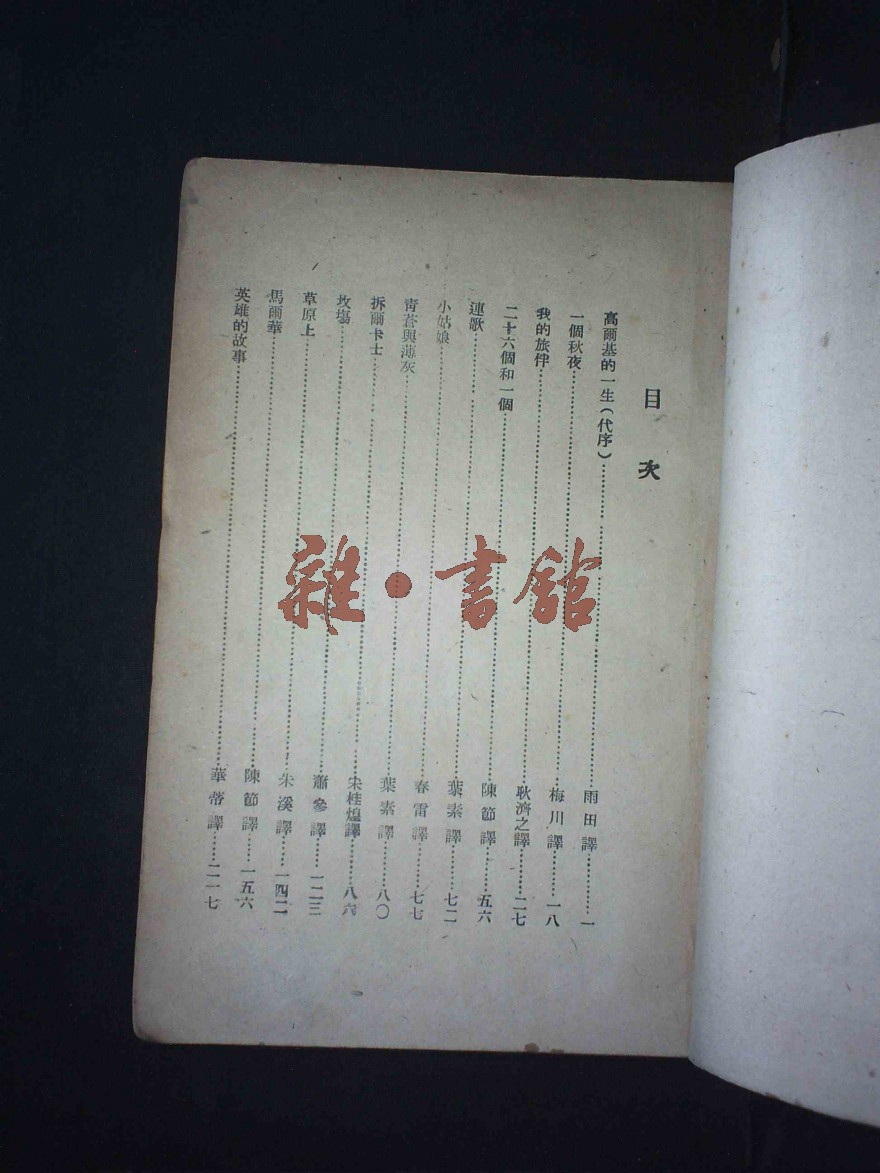 目次
高爾基的一生(代序)……雨田譯……一
一個秋夜……梅川譯……一八
我的旅伴……耿濟之譯……二七
二十六個和一個……陳節譯……五六
連歌……葉素譯……七二
小姑娘……春雷譯……七七
青蒼與薄灰……葉素譯……八〇
拆爾卡士……宋桂煌譯……八六
坟塲……蕭參譯……一二三
草原上……朱溪譯……一四二
馬爾華……陳節譯……一五六
英雄的故事……華蒂譯……二一七
雜·書舘